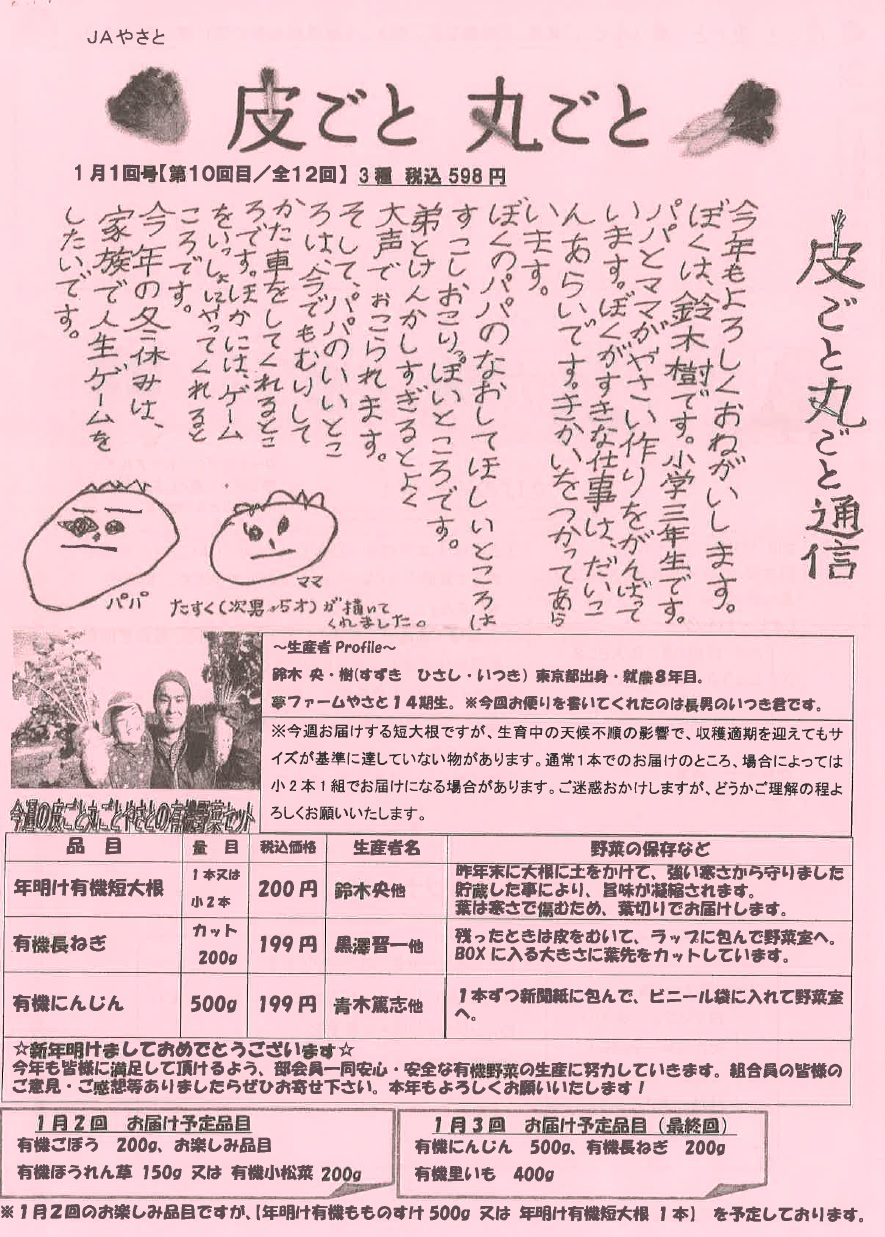 JAやさと
皮ごと 丸ごと
1月1回号【第10回目/全12回】 3種 税込598円
皮ごと丸ごと通信
今年もよろしくおねがいします。
ぼくは、鈴木樹です。小学三年生です。
パパとママがやさい作りをがんばって
います。ぼくがすきな仕事は、だいこ
んあらいです。きかいをつかってあら
います。
ぼくのパパのなおしてほしいところは
すこしおこりっぽいところです。
弟とけんかしすぎるとよく
大声でおこられます。
そして、パパのいいとこ
ろは、今でもむりして
かた車をしてくれるとこ
ろです。ほかには、ゲーム
をいっしょにやってくれると
ころです。
今年の冬休みは、
家族で人生ゲームを
したいです。
パパ
ママ
たすく(次男・5才)が描いて
くれました。
~生産者Profile~
鈴木 央・樹(すずき ひさし・いつき) 東京都出身・就農8年目。
夢ファームやさと14期生。 ※今回お便りを書いてくれたのは長男のいつき君です。
※今週お届けする短大根ですが、生育中の天候不順の影響で、収穫適期を迎えてもサ
イズが基準に達していない物があります。通常1本でのお届けのところ、場合によっては
小2本1組でお届けになる場合があります。ご迷惑おかけしますが、どうかご理解の程よ
ろしくお願いいたします。
今週の皮ごと丸ごとやさとの有機野菜セット
品 目 量 目 税込価格 生産者名 野菜の保存など
年明け有機短大根 1本又は 小2本 200円 鈴木央他
昨年末に大根に土をかけて、強い寒さから守りました
貯蔵した事により、旨味が凝縮されます。
葉は寒さで傷むため、葉切りでお届けします。
有機長ねぎ カット 200g 199円 黒澤晋一他
残ったときは皮をむいて、ラップに包んで野菜室へ。
BOXに入る大きさに葉先をカットしています。
有機にんじん 500g 199円 青木篤志他
1本ずつ新聞紙に包んで、ビニール袋に入れて野菜室
へ。
☆新年明けましておめでとうございます☆
今年も皆様に満足して頂けるよう、部会員一同安心・安全な有機野菜の生産に努力していきます。組合員の皆様の
ご意見・ご感想等ありましたらぜひお寄せ下さい。本年もよろしくお願いいたします!
1月2回 お届け予定品目
有機ごぼう 200g、お楽しみ品目
有機ほうれん草 150g 又は 有機小松菜 200g
1月3回 お届け予定品目(最終回)
有機にんじん 500g、有機長ねぎ 200g
有機里いも 400g
※1月2回のお楽しみ品目ですが、【年明け有機もものすけ500g 又は 年明け有機短大根 1本】 を予定しております。